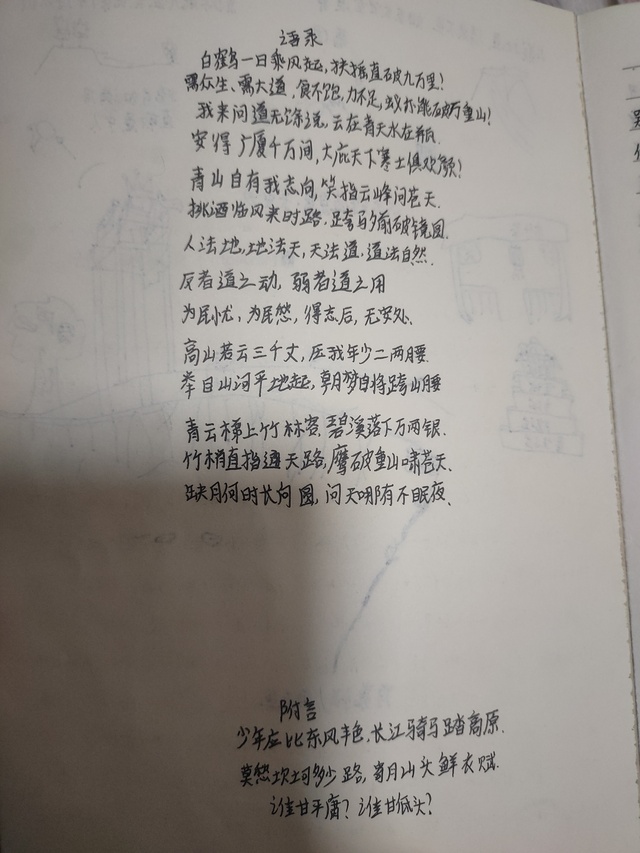 语录
白鹤一日乘风起,扶摇直破九万里!
需众生、需大道,食不饱,力不足,蚁扑能破万重山!
我来问道无馀说,云在青天水在瓶.
安得广厦千万间,大庇天下寒士俱欢颜!
青山自有我志向,笑指云峰问苍天.
挑酒临风来时路,足跨马前破镜圆.
人法地,地法天,天法道,道法自然.
反者道之动,弱者道之用
为民忧,为民愁,得志后,无安处.
高山若云三千丈,压我年少二两腰
举目山河平地起,朝梦自将跨山腰
青云梯上竹林客.碧溪落下万两银.
竹梢直指通天路,摩破重山啸苍天.
缺月何时长向圆,问天哪有不眠夜.
附言
少年应比东风丰色.长江骑马踏高原.
莫愁坎坷多少路,月山头鲜衣赋.
谁甘平庸?谁甘低头?